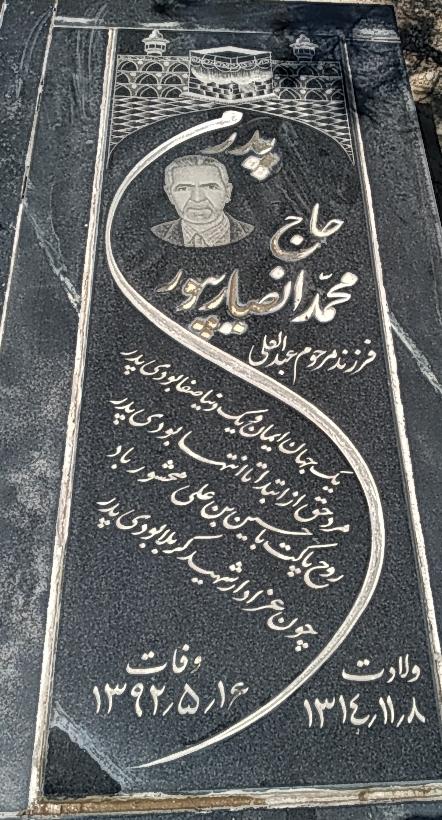 پدر
حاج
محمد انصارپور
فرزند مرحوم عبدالعلی
یک جهان ایمان و یک دنیا صفا بودی پدر
مرد حق از ابتدا تا انتها بودی پدر
روح پاکت با حسین بن علی محشور باد
چون عزادار شهید کربلا بودی پدر
ولادت
۱۳۱۴٫۱۱٫۸
وفات
۱۳۹۲٫۵٫۱۶